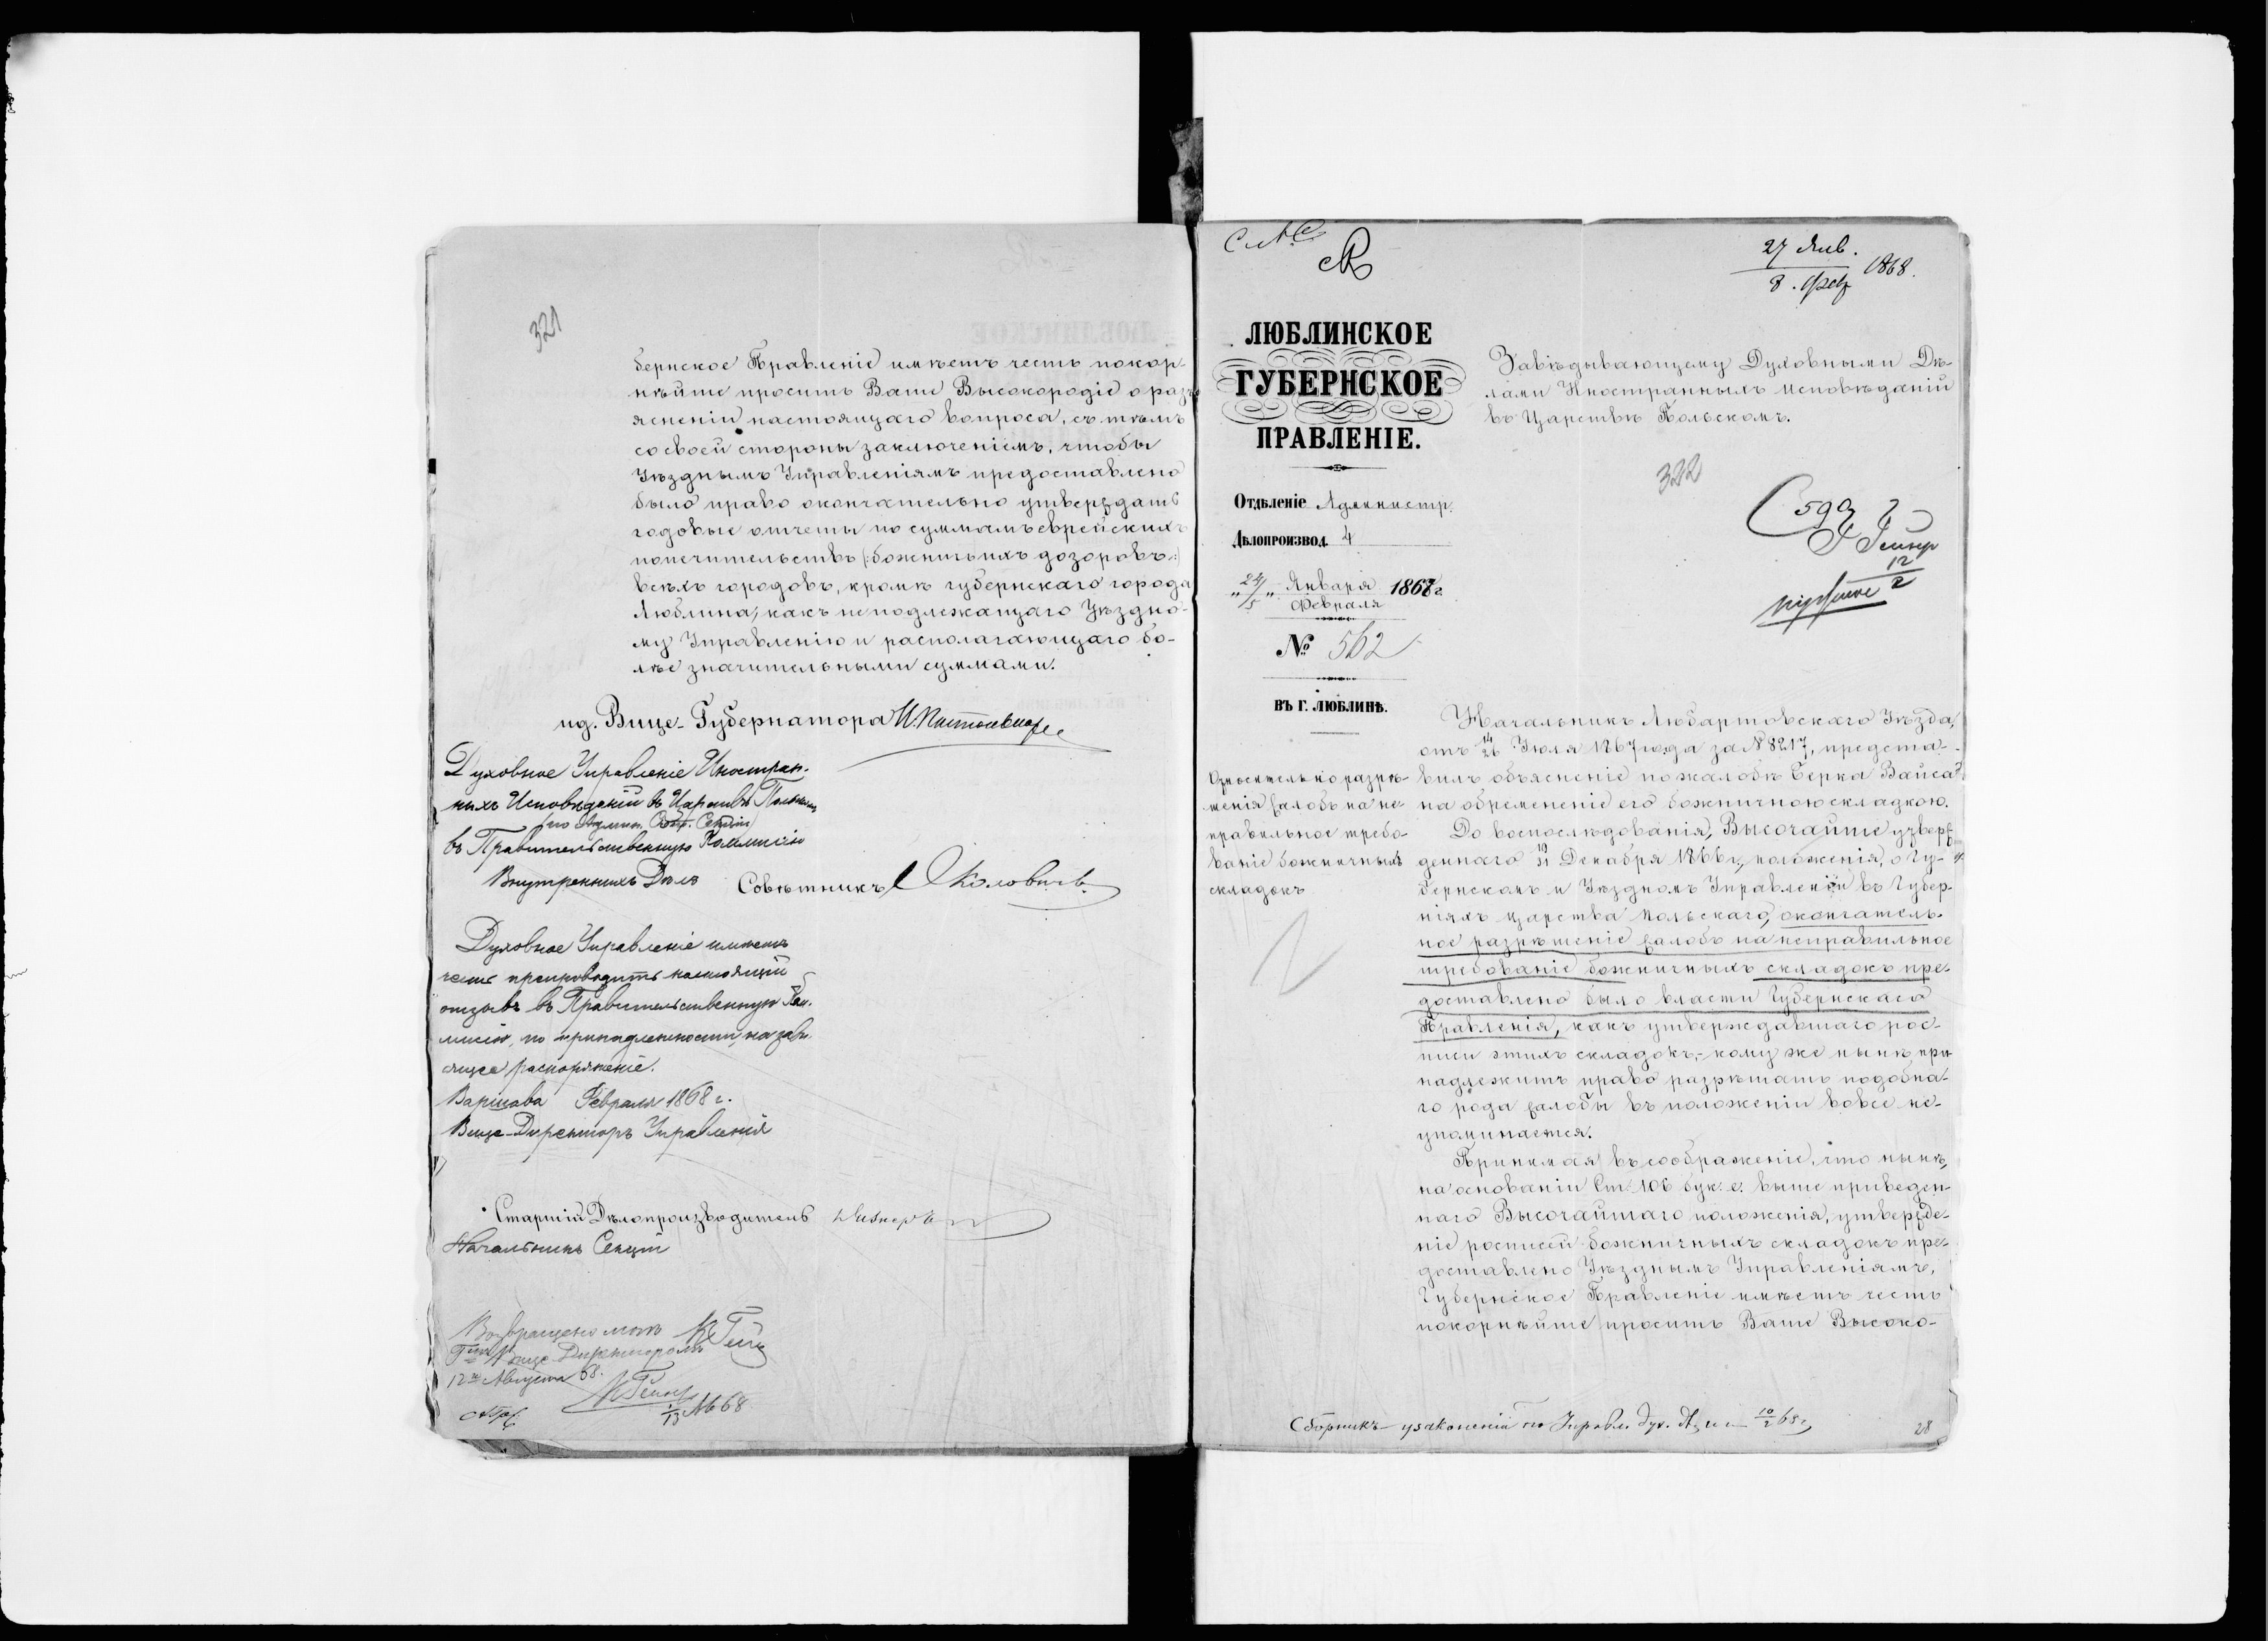 321
бернское Правленіе имѣетъ честь покор-
нѣйше просить Ваше Высокородіе о разъ
ясненіи настоящаго вопроса, съ тѣмъ
со своей стороны заключеніемъ, чтобы
Уѣзднымъ Управленіямъ предоставлено
было право окончательно утверждать
годовые отчеты по суммамъ еврейскихъ
попечительствъ (:божничныхъ дозоровъ:)
всѣхъ городовъ, кромѣ губернскаго города
Люблина, какъ неподлежащаго Уѣздно-
му Управленію и располагающаго бо-
лѣе значительными суммами.
ид. Вице-Губернатора
Духовное Управленіе Иностран-
ныхъ Исповѣданій въ Царствѣ Польскомъ
въ Правительственную Коммисію
Внутреннихъ Дѣлъ
Совѣтникъ
Духовное Управленіе имѣетъ
честь препроводить настоящій
отзывъ въ Правительственную Ком-
мисію, по принадлежности, на зави-
сящее распоряженіе.
Варшава Февраля 1868 г.
Вице-Директоръ Управленія
Старшій Дѣлопроизводитель
Начальникъ Секціи
Возвращено мнѣ
Вице Директоромъ
12го Августа 68.
27 Янв.
8 Фев 1868.
ЛЮБЛИНСКОЕ
ГУБЕРНСКОЕ
ПРАВЛЕНІЕ.
Отдѣленіе Администр.
Дѣлопроизвод. 4
„24/5„ Января Февраля 1868 г.
№ 562
ВЪ Г. ЛЮБЛИНѢ.
Относительно разрѣ-
шенія жалобъ на не-
правильное требо-
ваніе божничныхъ
складокъ
Завѣдывающему Духовными Дѣ-
лами Иностранныхъ исповѣданій
въ Царствѣ Польскомъ.
322
12
2
Начальникъ Любартовскаго Уѣзда,
отъ 14/26 Іюля 1867 года за № 8217, предста-
вилъ объясненіе по жалобѣ Берка Вайса
на обремененіе его божничною складкою.
До воспослѣдованія, Высочайше утверж-
деннаго 19/31 Декабря 1866 г., положенія, о Гу-
бернскомъ и Уѣздномъ Управленіи въ Губер-
ніяхъ Царства Польскаго, окончатель-
ное разрѣшеніе жалобъ на неправильное
требованіе божничныхъ складокъ пре-
доставлено было власти Губернскаго
Правленія, какъ утверждавшаго рос-
писи этихъ складокъ,- кому же нынѣ при-
надлежитъ право разрѣшать подобна-
го рода жалобы въ положеніи вовсе не-
упоминается.
Принимая въ соображеніе, что нынѣ,
на основаніи Ст. 106 бук. е. выше приведен-
наго Высочайшаго положенія, утвержде-
ніе росписей божничныхъ складокъ пре-
доставлено Уѣзднымъ Управленіямъ,
Губернское Правленіе имѣетъ честь
покорнѣйше просить Ваше Высоко-
Сборникъ узаконеній по Управл. Дух. 10/2 68 г.
28